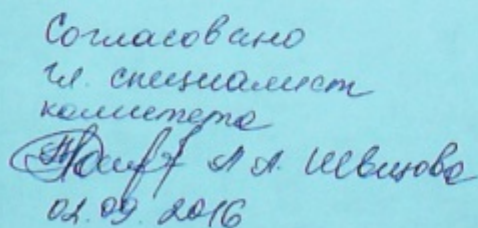 Согласовано
гл. специалист
комитета
А А. Швецова
02.09.2016